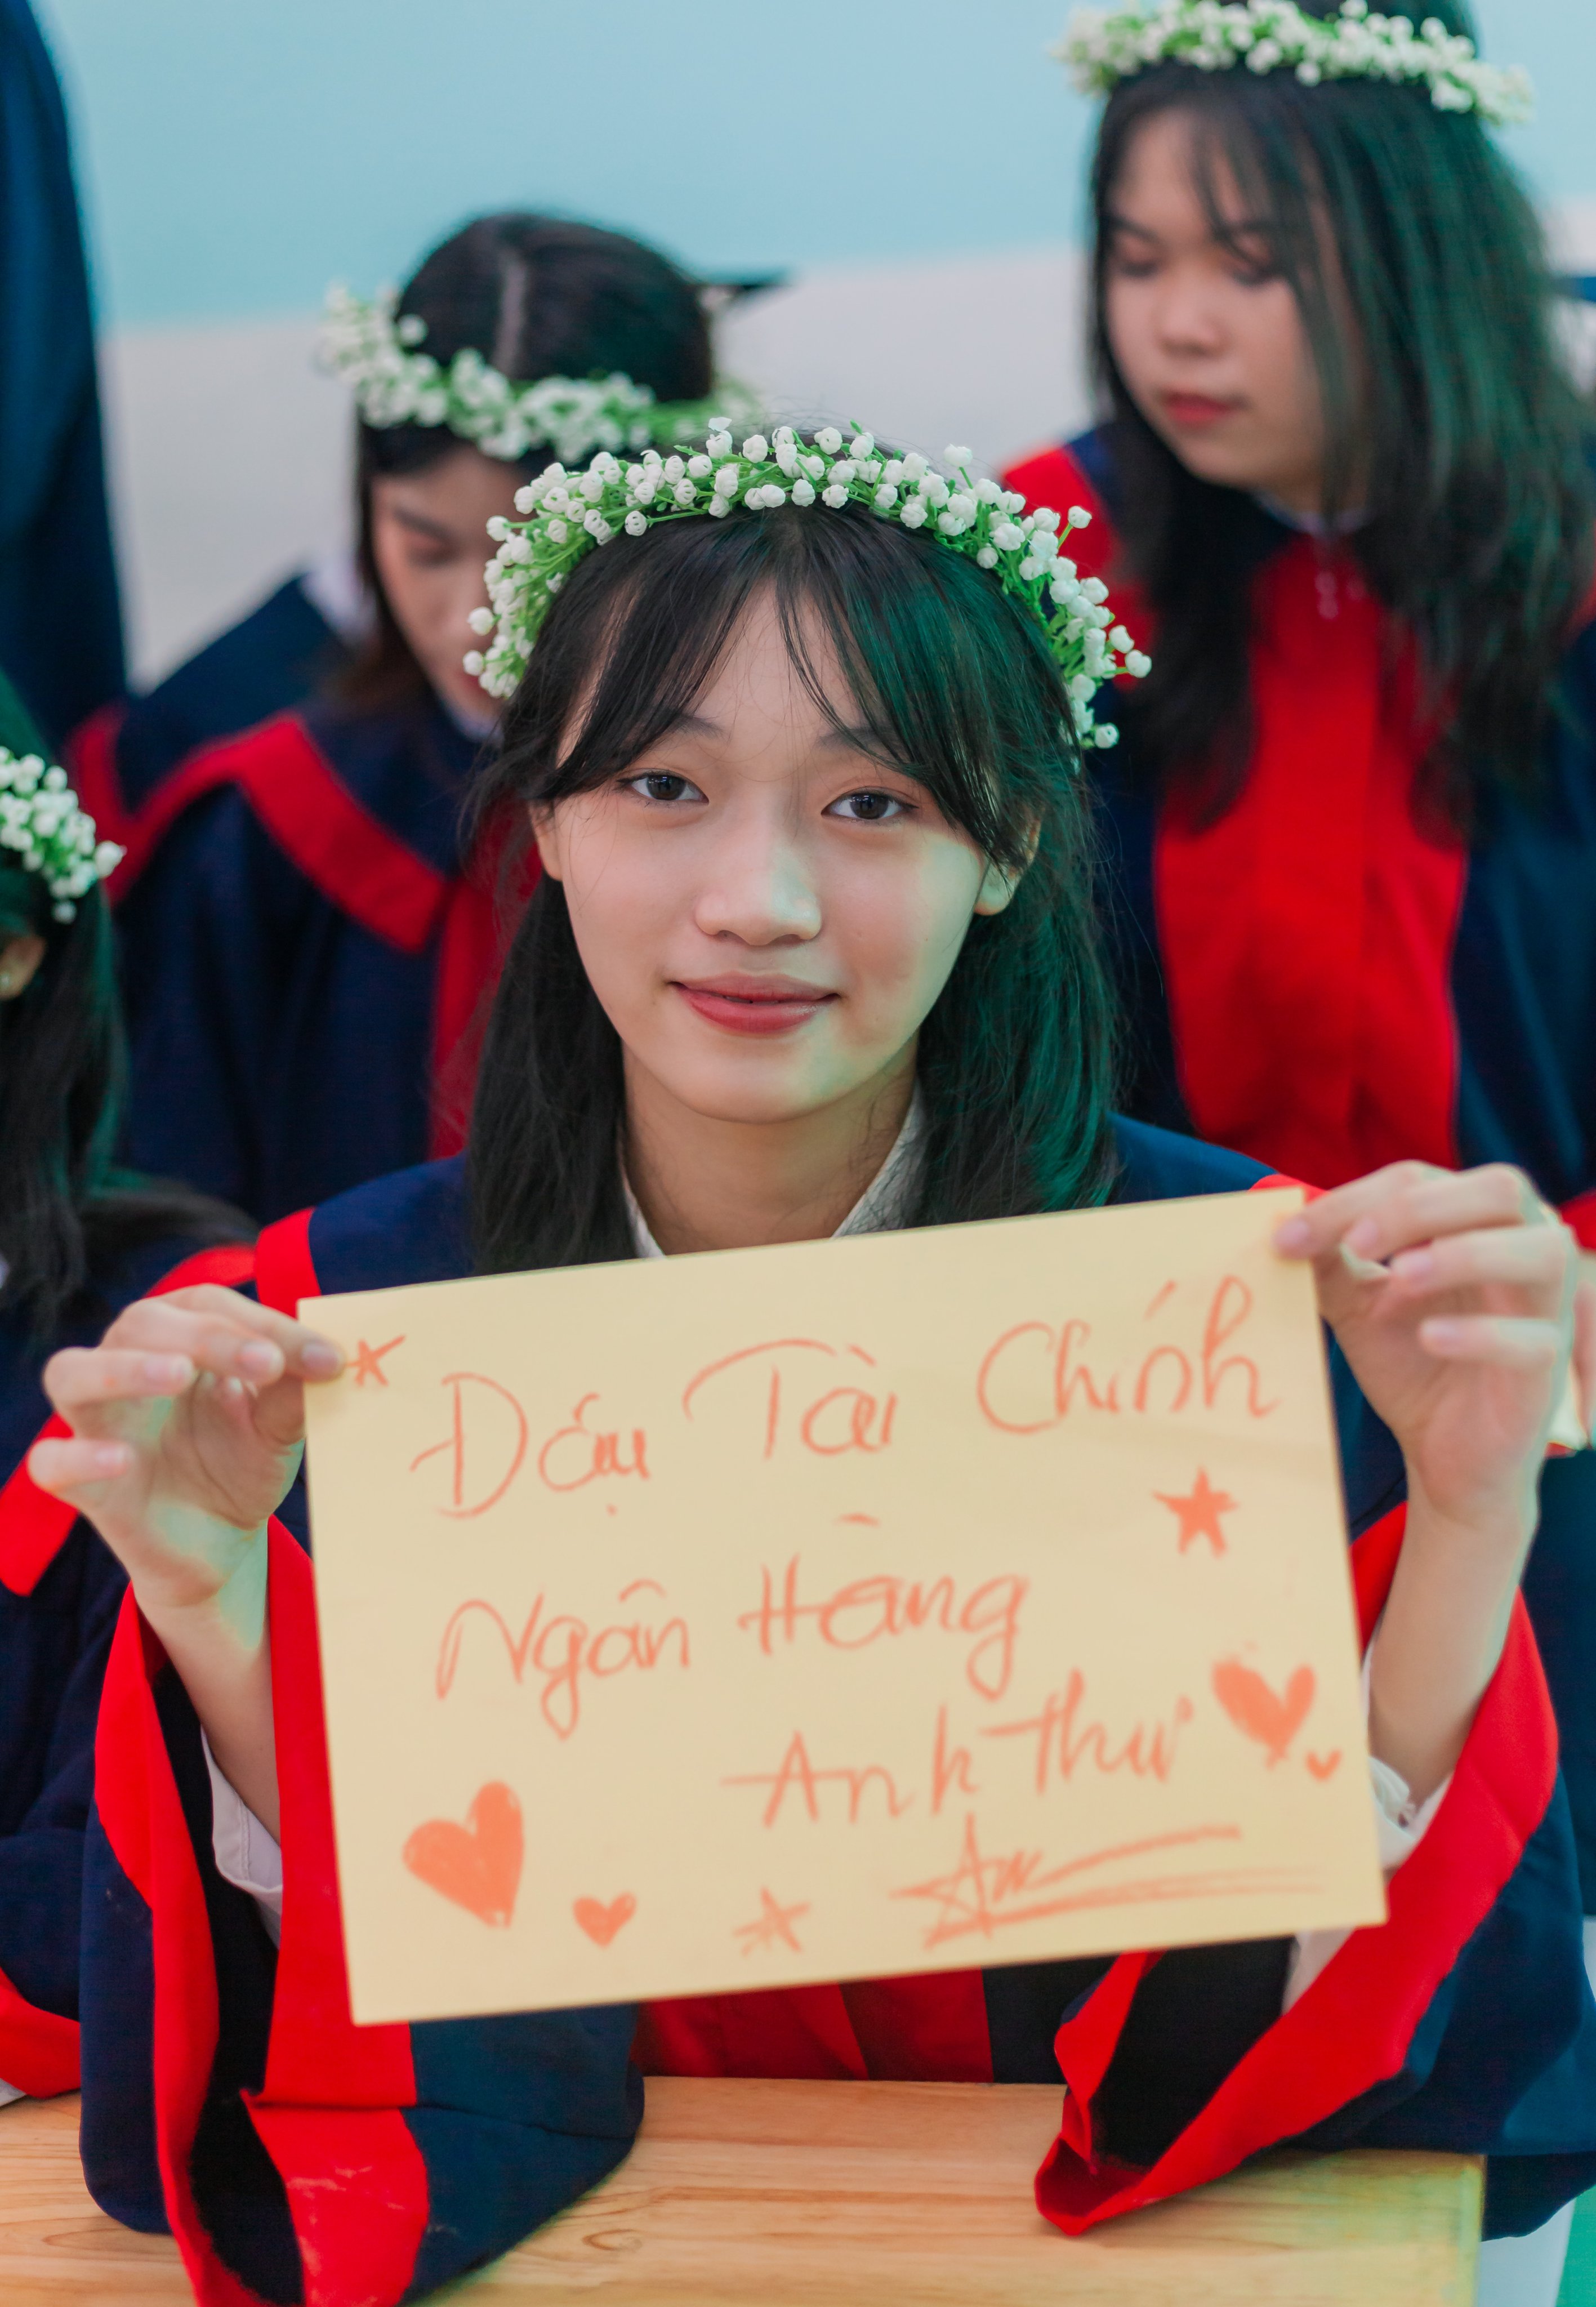 Đậu Tài Chính
Ngân Hàng
Anh Thư